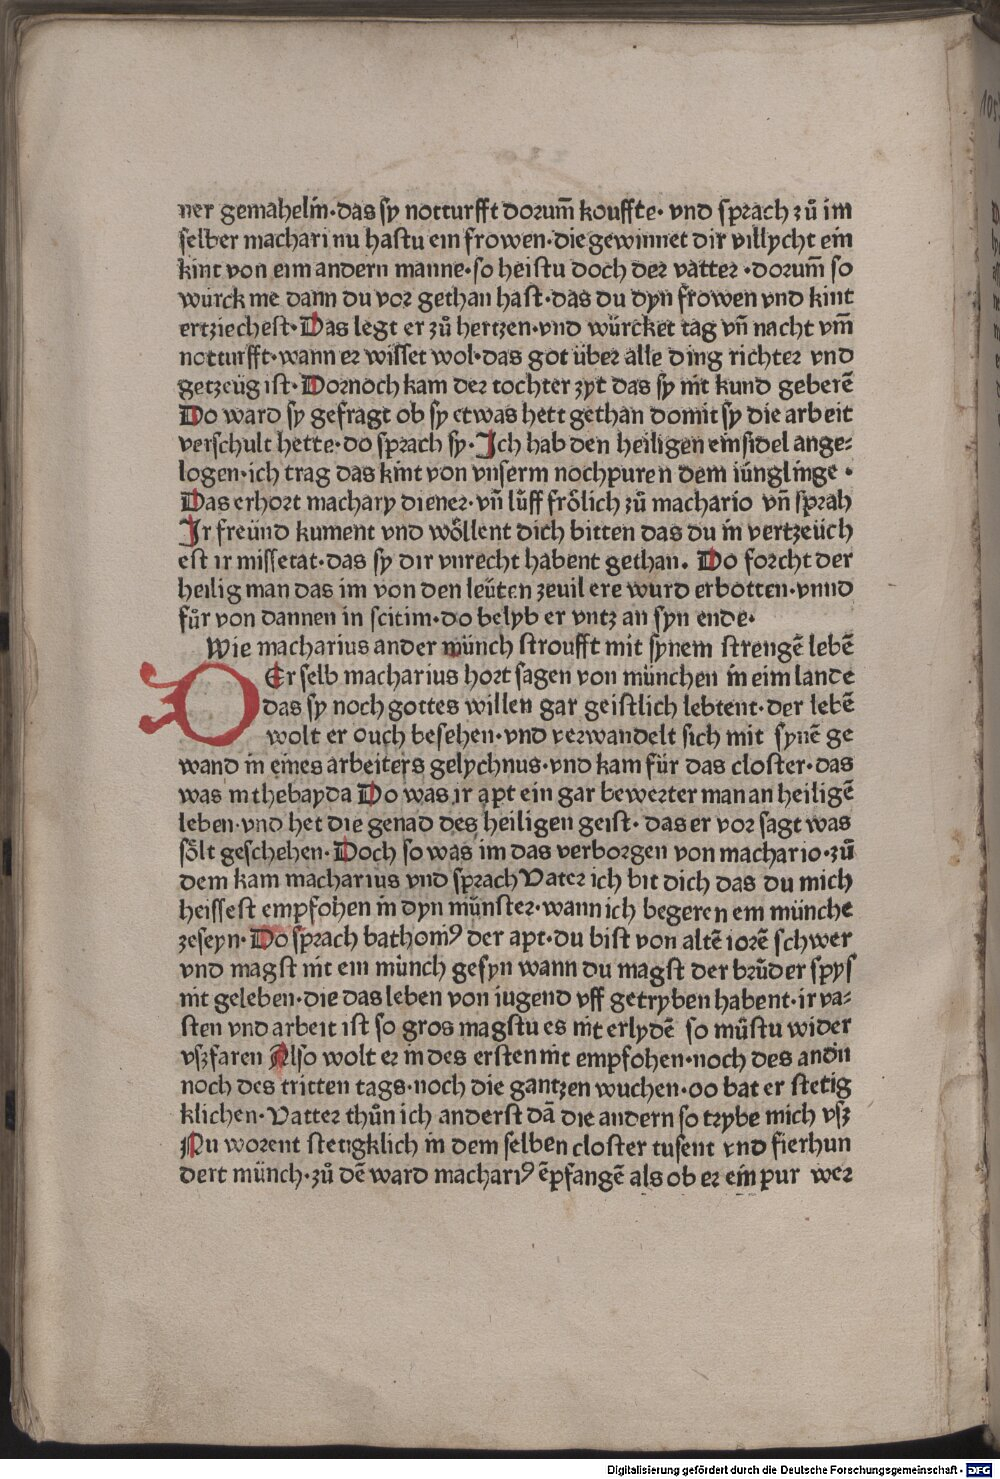 ner gemahelin·das sy notturfft dorum̃ kouffte· vnd sprach zů im
selber machari nu hastu ein frowen·die gewinnet dir villycht ein
kint von eim andern manne·so heistu doch der vatter ·dorum̃ so
würck me dann du vor gethan hast·das du dyn frowen vnd kint
ertziechest·Das legt er zů hertzen·vnd würcket tag vñ nacht vm̃
notturfft·wann er wisset wol·das got über alle ding richter vnd
getzeüg ist· Dornoch kam der tochter zyt das sy nit kund geberē
Do ward sy gefragt ob sy etwas hett gethan domit sy die arbeit
verschult hette·do sprach sy·Ich hab den heiligen einsidel ange⸗
logen·ich trag das kint von vnserm nochpuren dem iünglinge ·
Das erhort machary diener·vñ lüff frölich zů machario vñ sprah
Ir freünd kument vnd wöllent dich bitten das du in vertzeüch
est ir missetat·das sy dir vnrecht habent gethan. Do forcht der
heilig man das im von den leüten zeuil ere wurd erbotten·vnnd
fůr von dannen in scitim·do belyb er vntz an syn ende·
Wie macharius ander münch stroufft mit synem strengē lebē
DEr selb macharius hort sagen von münchen in eim lande
das sy noch gottes willen gar geistlich lebtent·der lebē
wolt er ouch besehen·vnd verwandelt sich mit synē ge
wand in eines arbeiters gelychnus·vnd kam für das closter·das
was in thebayda Do was ir apt ein gar bewerter man an heiligē
leben·vnd het die genad des heiligen geist· das er vor sagt was
sölt geschehen·Doch so was im das verborgen von machario·zů
dem kam macharius vnd sprach Vater ich bit dich das du mich
heissest empfohen in dyn münster·wann ich begeren em münche
zeseyn·Do sprach bathomꝰ der apt·du bist von altē iorē schwer
vnd magst nit ein münch gesyn wann du magst der brůder spys
nit geleben·die das leben von iugend vff getryben habent·ir va⸗
sten vnd arbeit ist so gros magstu es nit erlydē so můstu wider
vszfaren Also wolt er in des ersten nit empfohen·noch des andn̄
noch des tritten tags·noch die gantzen wuchen·oo bat er stetig
klichen·Vatter thůn ich anderst dā die andern so trybe mich vsz
Nu worent stetigklich in dem selben closter tusent vnd fierhun
dert münch·zů dē ward machariꝰ ēpfangē als ob er ein pur wer
Digitalisierung gefördert durch die Deutsche Forschungsgemeinschaft - DFG